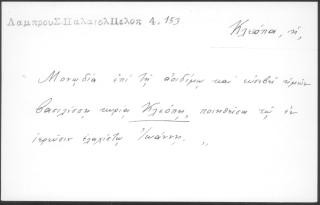 Λαμπρου Σ. Παλαιολ Πελοπ 4. 153
Κλεόπα, ἡ,
Μονῳδία ἐπὶ τῇ ἀοιδίμῳ καὶ εὐσεβεῖ ἡμῶν
βασιλίσσῃ κυρίᾳ Κλεόπῃ, ποιηθεῖσα τῷ ἐν
ἱερεῦσιν ἐλαχίστῳ Ἰωάννῃ. „